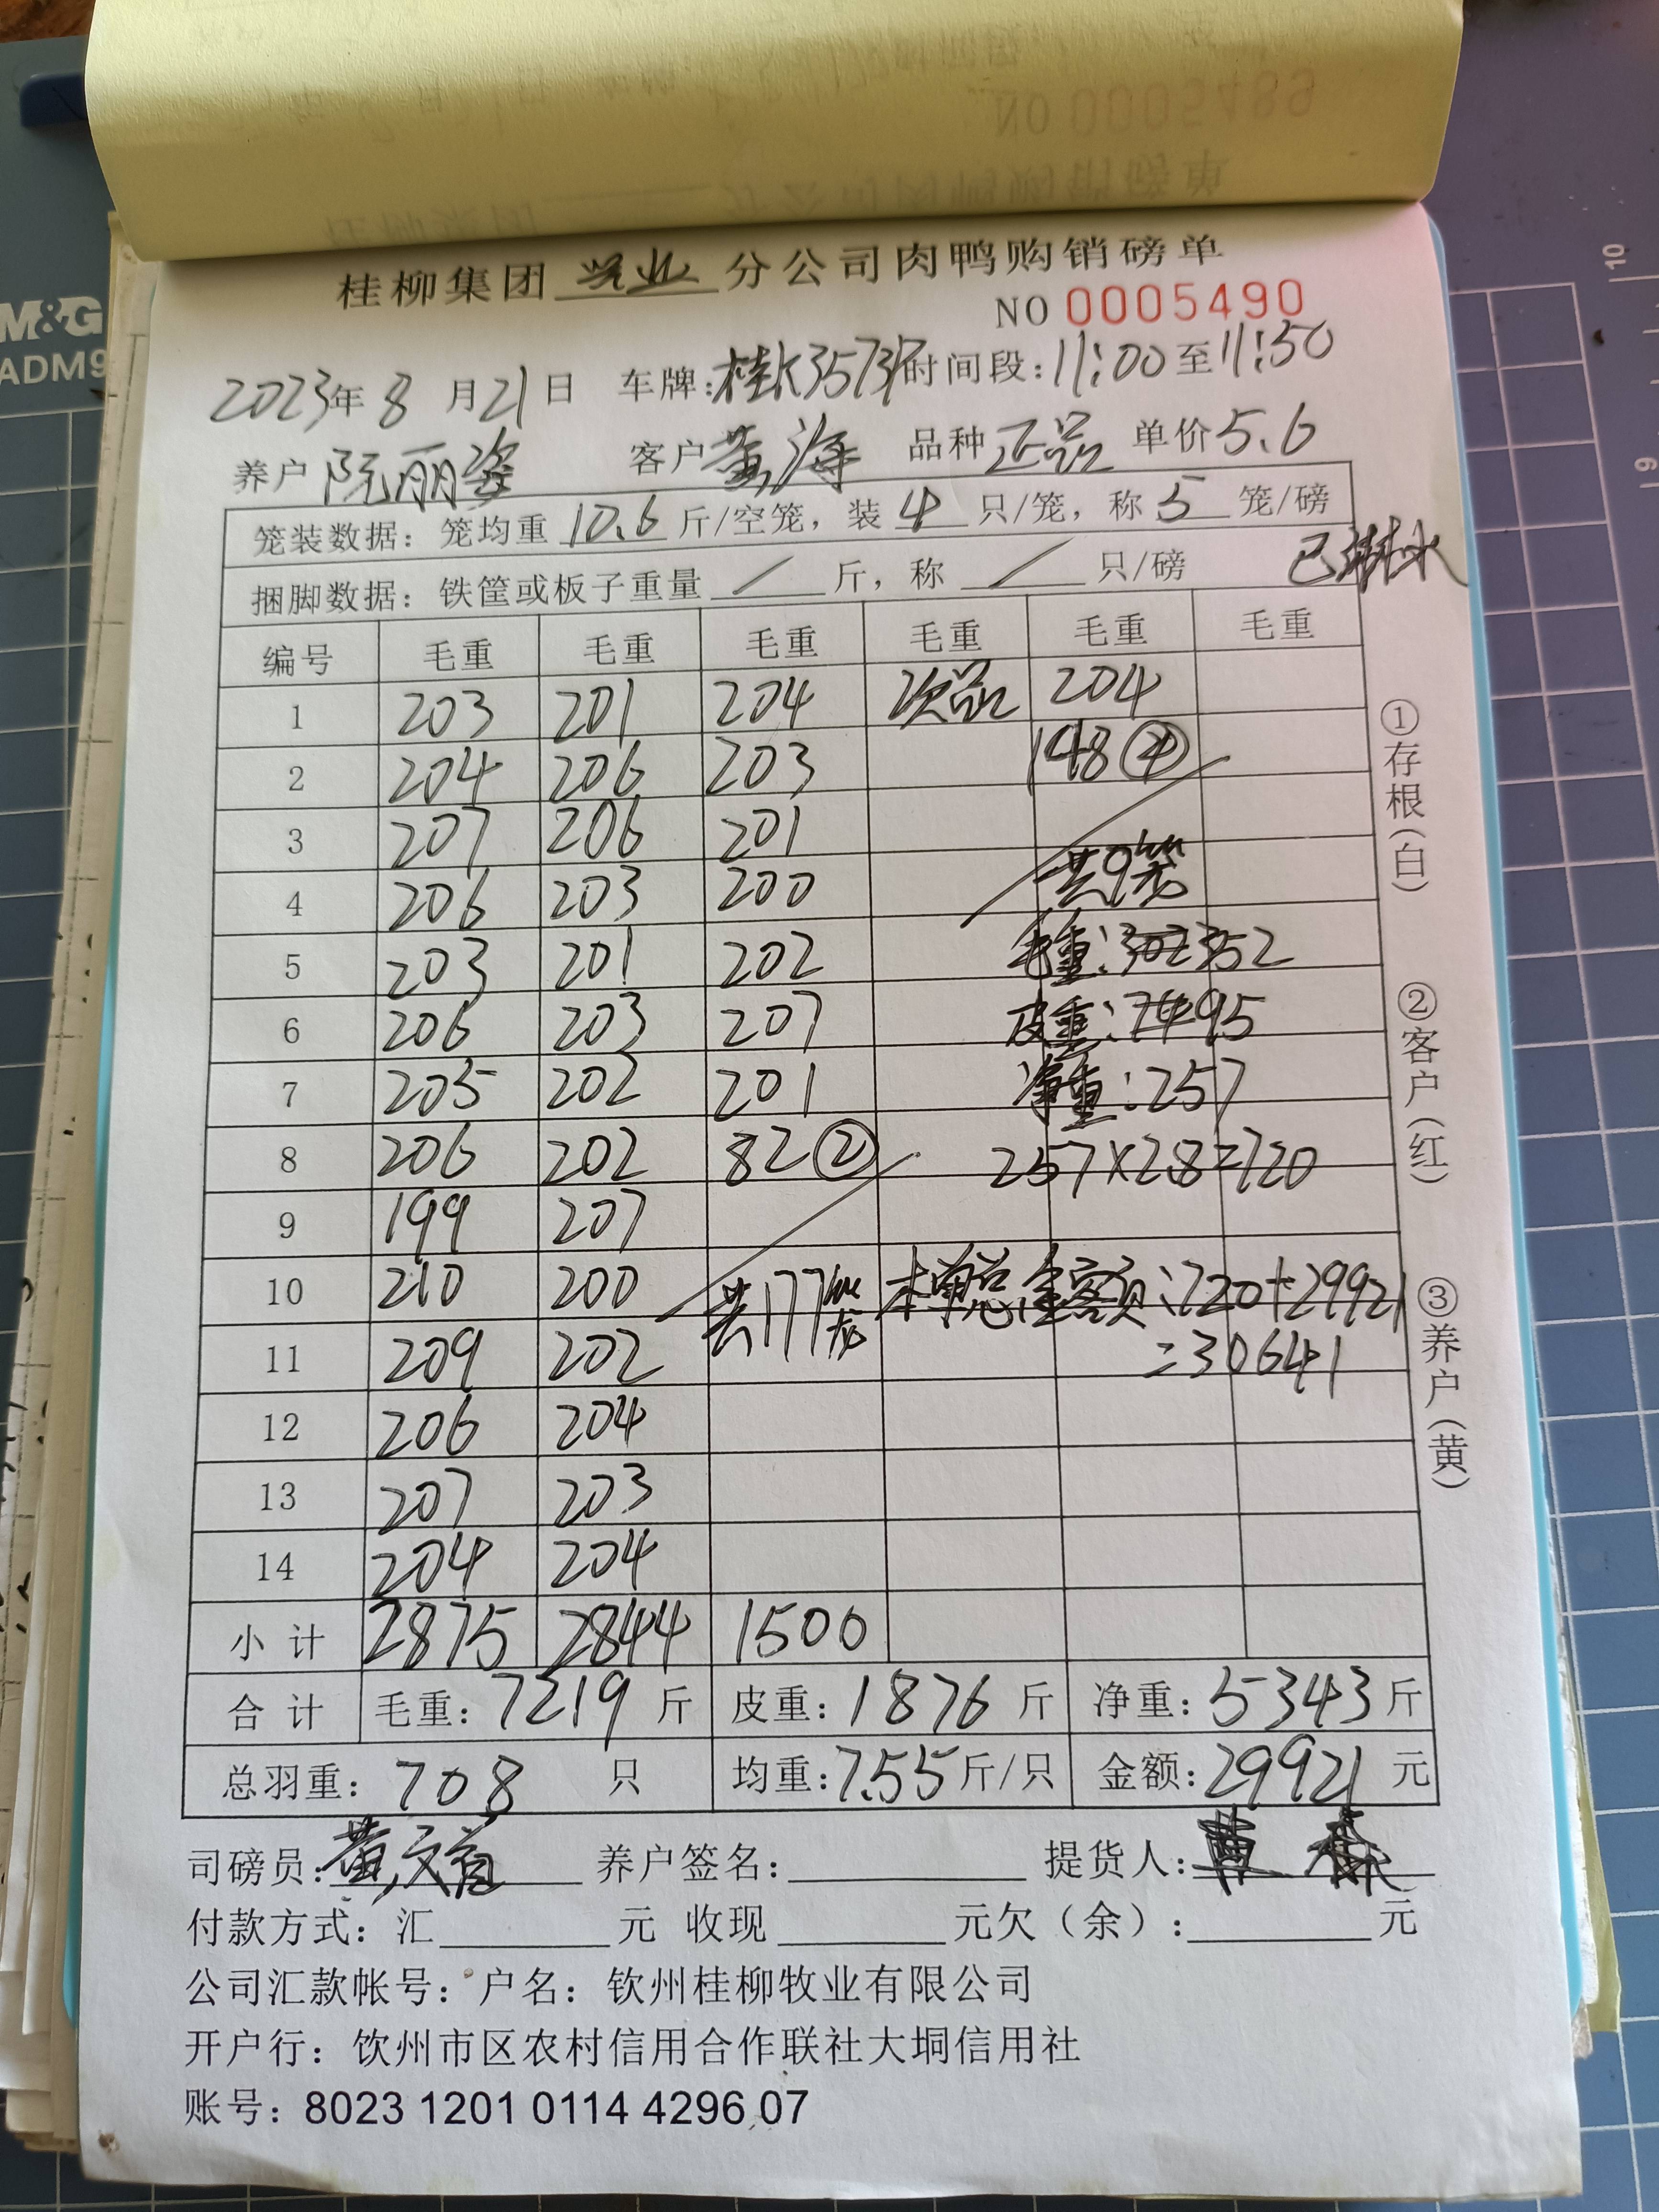 M&G
ADM9
NO 0005489
桂柳集团 牧业 分公司肉鸭购销磅单
NO 0005490
2023年 8 月 21 日 车牌: 时间段: 11:00 至 11:50
养户 阮丽姿 客户 黄海 品种 正品 单价 5.6
笼装数据: 笼均重 10.6 斤/空笼, 装 4 只/笼, 称 5 笼/磅
已淋水
捆脚数据: 铁筐或板子重量 / 斤, 称 / 只/磅
编号 毛重 毛重 毛重 毛重 毛重 毛重
1 203 201 204 次品 204
2 204 206 203 148④
3 207 206 201
4 206 203 200 共9笼
5 203 201 202 毛重: 352
6 206 203 207 皮重: 95
7 205 202 201 净重: 257
8 206 202 82② 257×2.8=720
9 199 207
10 210 200 共177笼 本单总金额: 720+29921
11 209 202 =30641
12 206 204
13 207 203
14 204 204
小计 2875 2844 1500
合计 毛重: 7219 斤 皮重: 1876 斤 净重: 5343 斤
总羽重: 708 只 均重: 7.55 斤/只 金额: 29921 元
①存根(白) ②客户(红) ③养户(黄)
司磅员: 养户签名: 提货人:
付款方式: 汇 元 收现 元欠(余): 元
公司汇款帐号: 户名: 钦州桂柳牧业有限公司
开户行: 钦州市区农村信用合作联社大垌信用社
账号: 8023 1201 0114 4296 07
10
9